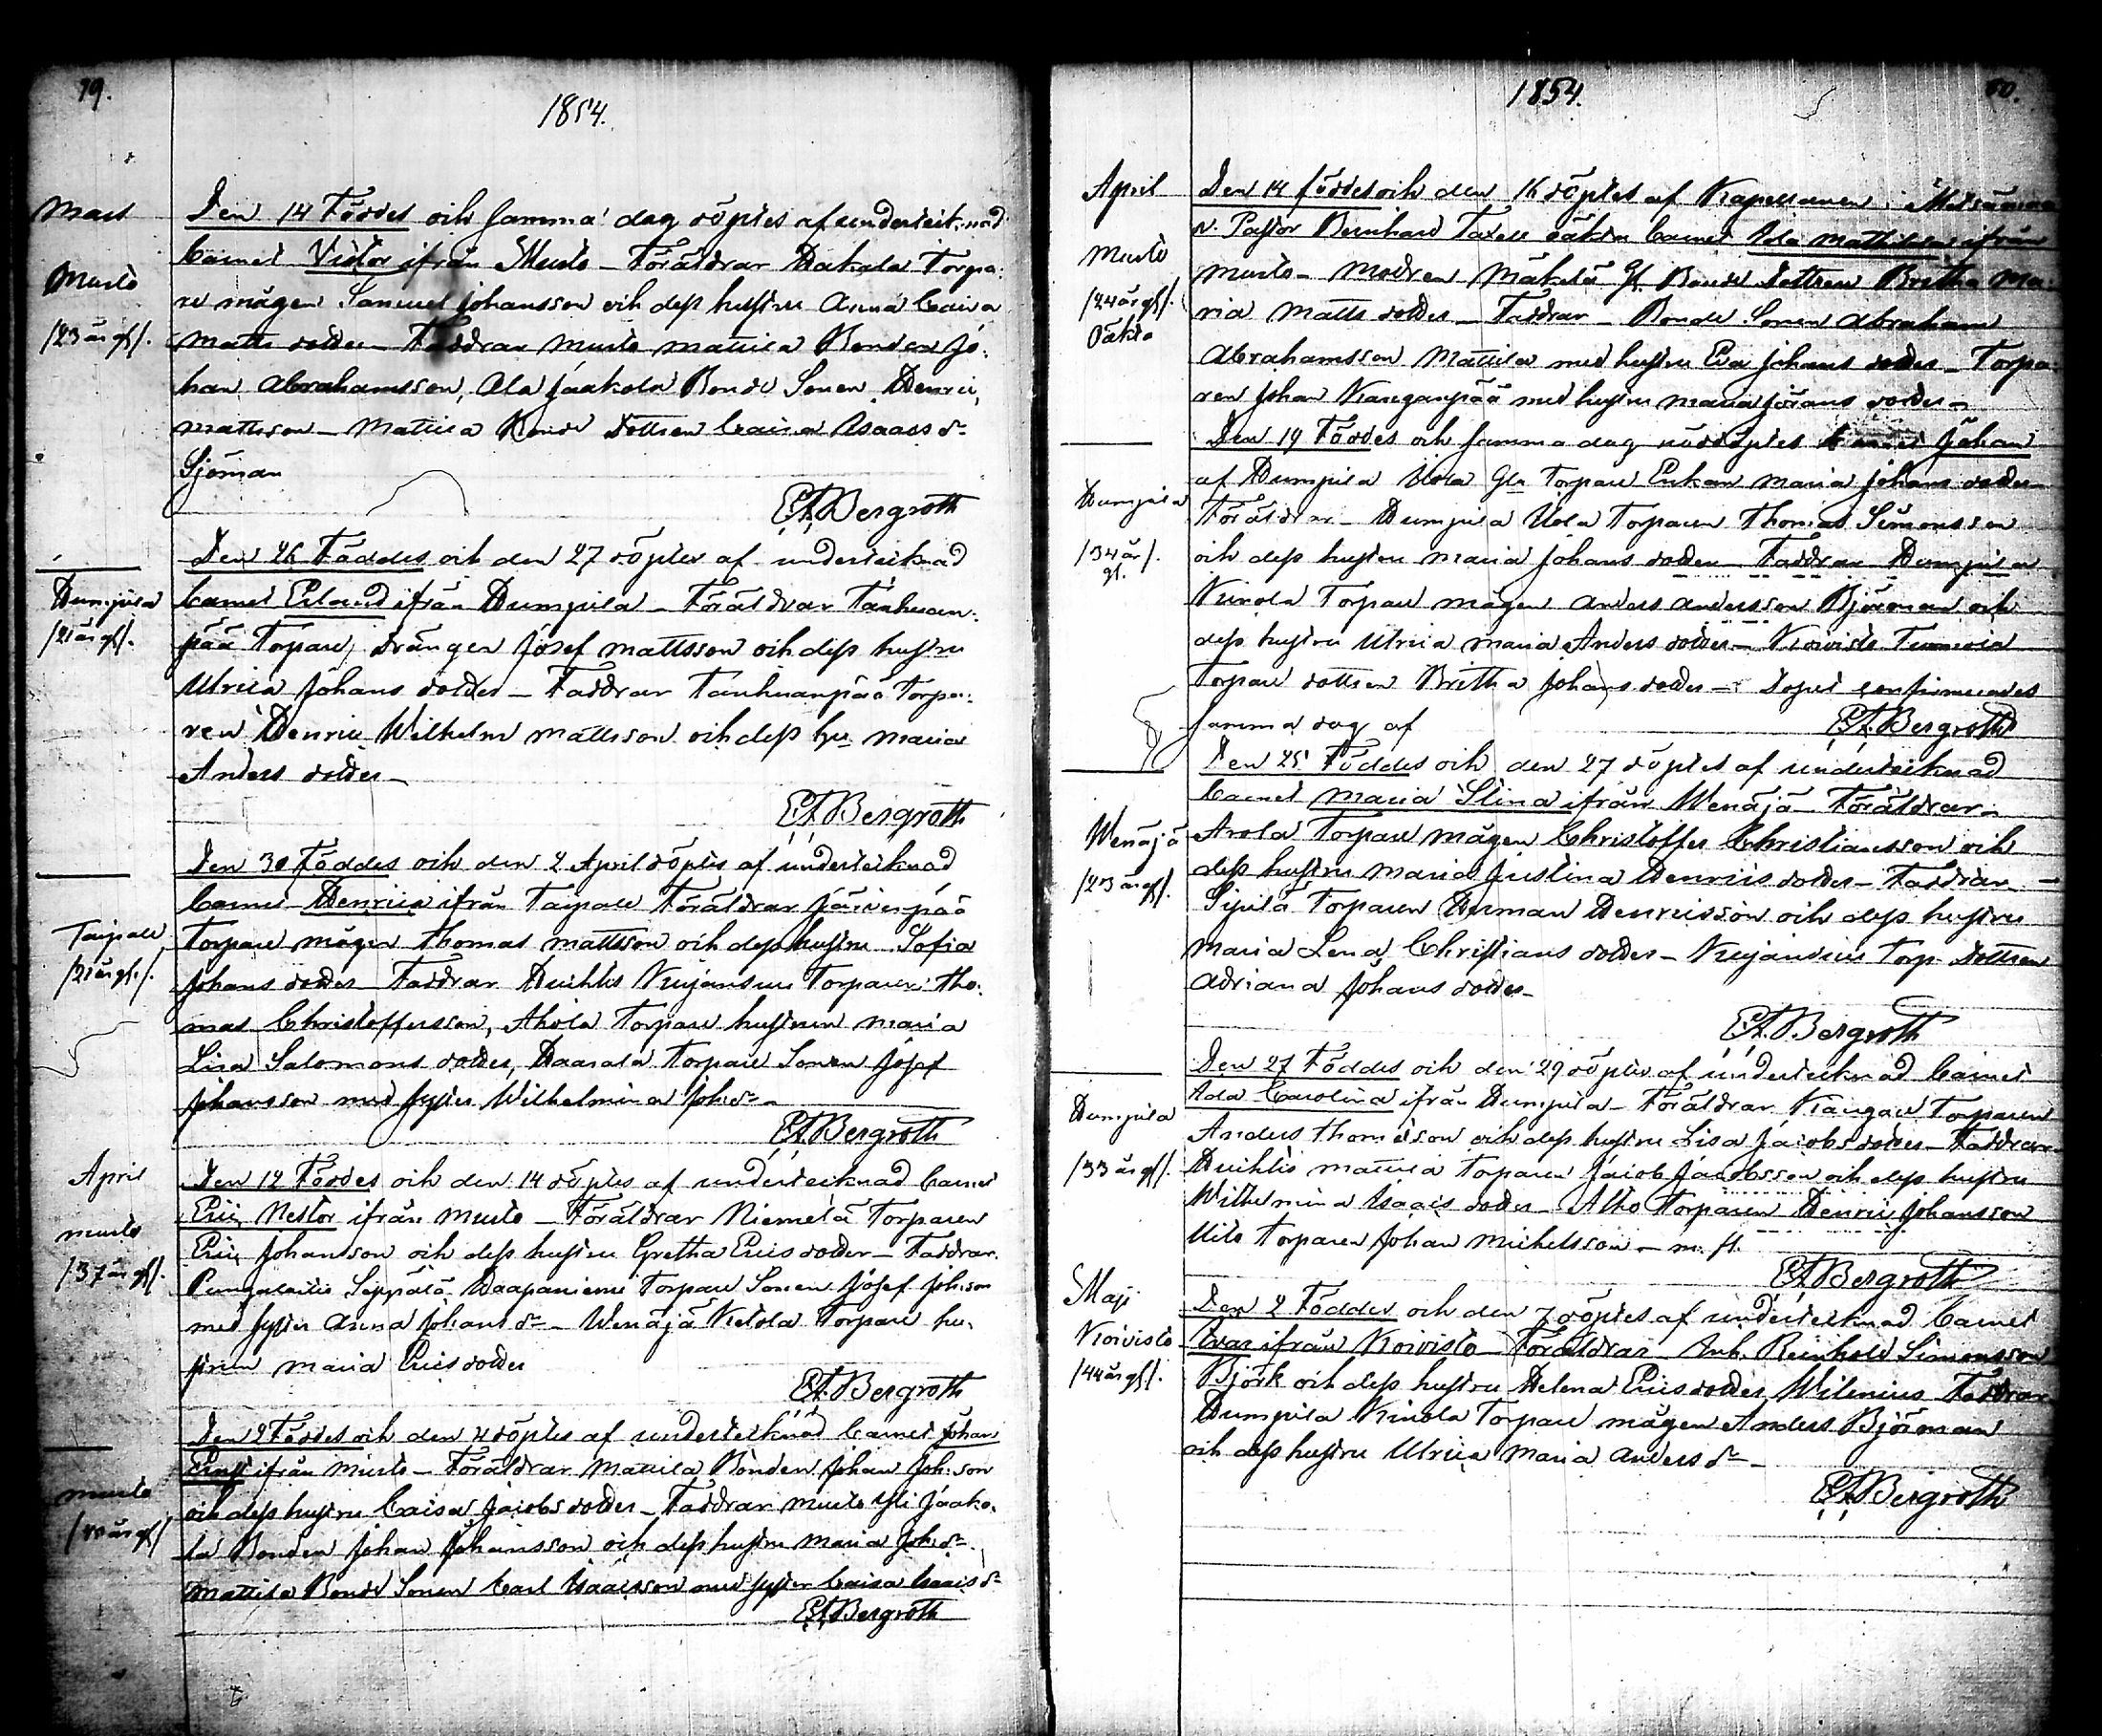 79.
1854.
Mars
Den 14 Föddes och samma dag döptes af undertecknad
Barnet Victor ifrån Musto – Föräldrar Hakala Torpa-
Musto
re mågen Samuel Johansson och dess hustru Anna Caisa
/23 år gl/.
Matts dotter – Faddrar Musto Mattila Bonden Jo-
han Abrahamsson, Ala Jaakola Bonde Sonen Henric
Mattsson – Mattila Bonde Dottren Caisa Isaacs dr
Sjöman
E A Bergroth
Den 26 Föddes och den 27 döptes af undertecknad
Humpila
Barnet Erland ifrån Humpila – Föräldrar Tanhuan-
/21 år gl/.
pää Torpare drängen Josef Mattsson och dess hustru
Ulrica Johans dotter – Faddrar Tanhuanpää Torpa-
ren Henric Wilhelm Mattsson och dess hu Maria
Anders dotter –
E A Bergroth
Den 30 Föddes och den 2 April döptes af undertecknad
Barnet Henrica ifrån Taipale Föräldrar Järvenpää
Taipale
Torpare mågen Thomas Mattsson och dess hustru Sofia
/21 år gl./.
Johans dotter – Faddrar Huihtis Kujansuu Torparen Tho-
mas Christoffersson, Ahola Torpare hustrun Maria
Lisa Salomons dotter, Haarala Torpare Sonen Josef
Johansson med syster Wilhelmina Joh. dr –
E A Bergroth
April
Den 12 Föddes och den 14 döptes af undertecknad Barnet
Eric Nestor ifrån Musto – Föräldrar Niemelä Torparen
Musto
Eric Johansson och dess hustru Gretha Erics dotter – Faddrar
/37 år gl/.
Seppälä Haapaniemi Torpare Sonen Josef Joh. son
med syster Anna Johans dr – Wenäjä Torpare hu-
strun Maria Erics dotter
E A Bergroth
Den 2 Föddes och den 4 döptes af undertecknad Barnet Johan
Ernst ifrån Musto – Föräldrar Mattila Bonden Johan Joh. son
Musto
och dess hustru Caisa Jacobs dotter – Faddrar Musto Yli Jaako-
/40 år gl/
la Bonden Johan Johansson och dess hustru Maria Joh. dr –
Mattila Bonde Sonen Carl Isaacsson med syster Caisa Isaacs dr
E A Bergroth
1854.
80.
April
Den 14 föddes och den 16 döptes af Kapellanen i
v. Pastor Bernhard Taxell oäkta Barnet Ida Mathilda ifrån
Musto
Musto – Modren Mäkelä Bonde dottren Britha Ma-
/24 år gl/.
ria Matts dotter – Faddrar – Bonde Sonen Abraham
Oäkta
Abrahamsson Mattila med hustru Eva Johans dotter – Torpa-
ren Johan Kanganpää med hustru Maria Jörans dotter –
Den 19 Föddes och samma dag nöddöptes Barnet Johan
Humpila
af Humpila Torpare Enkan Maria Johans dotter
Föräldrar – Humpila Torparen Thomas Simonsson
/34 år gl./.
och dess hustru Maria Johans dotter – Faddrar Humpila
Torpare mågen Anders Andersson Björman och
dess hustru Ulrica Maria Anders dotter – Koivisto
Torpare dottren Britha Johans dotter – Dopet confirmerades
samma dag af
E A Bergroth
Den 25 Föddes och den 27 döptes af undertecknad
Barnet Maria Stina ifrån Wenäjä – Föräldrar –
Wenäjä
Arola Torpare mågen Christoffer Christiansson och
/23 år gl/.
dess hustru Maria Justina Henrics dotter – Faddrar –
Sipilä Torparen Herman Henricsson och dess hustru
Maria Lena Christians dotter – Kujansuu Torp. Dottren
Adriana Johans dotter –
E A Bergroth
Den 27 Föddes och den 29 döptes af undertecknad Barnet
Ada Carolina ifrån Humpila – Föräldrar Torparen
Humpila
Anders Thomasson och dess hustru Lisa Jacobs dotter – Faddrar
/33 år gl/.
Huihtis Mattila Torparen Jacob Jacobsson och dess hustru
Wilhelmina Isaacs dotter – Torparen Henric Johansson
Torparen Johan Michelsson – m. fl.
E A Bergroth
Maji
Den 2 Föddes och den 7 döptes af undertecknad Barnet
Koivisto
Ivar ifrån Koivisto – Föräldrar Reinhold Simonsson
/44 år gl/.
Björk och dess hustru Helena Erics dotter Wilenius Faddrar
Humpila Torpare mågen Anders Björman
och dess hustru Ulrica Maria Anders dr –
E A Bergroth